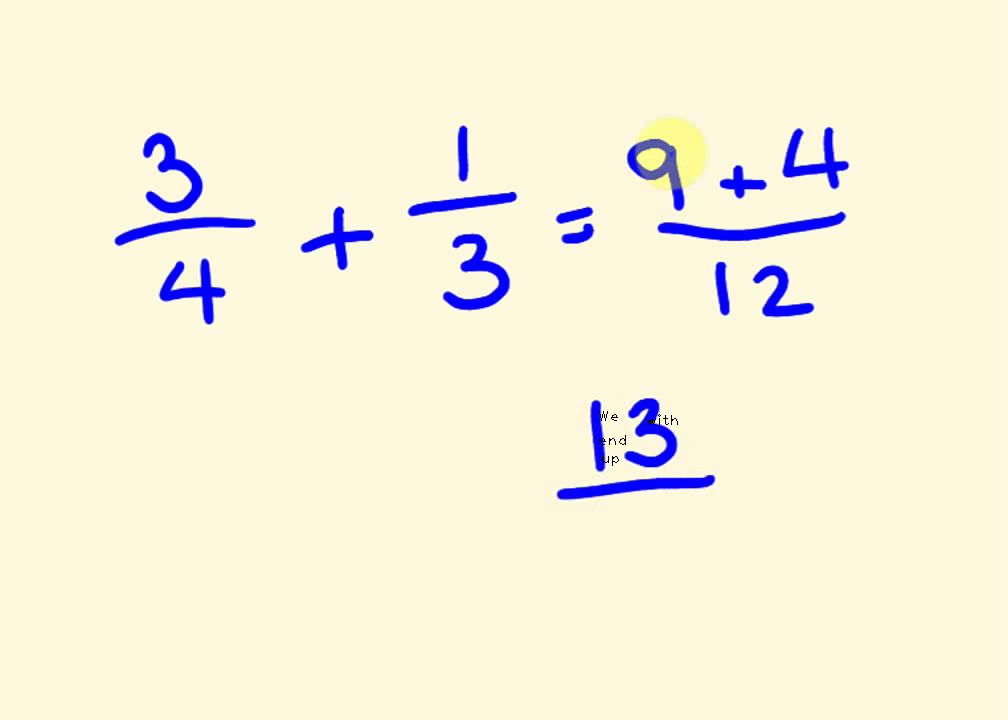 3/4 + 1/3 = 9 + 4/12
13
We end up with